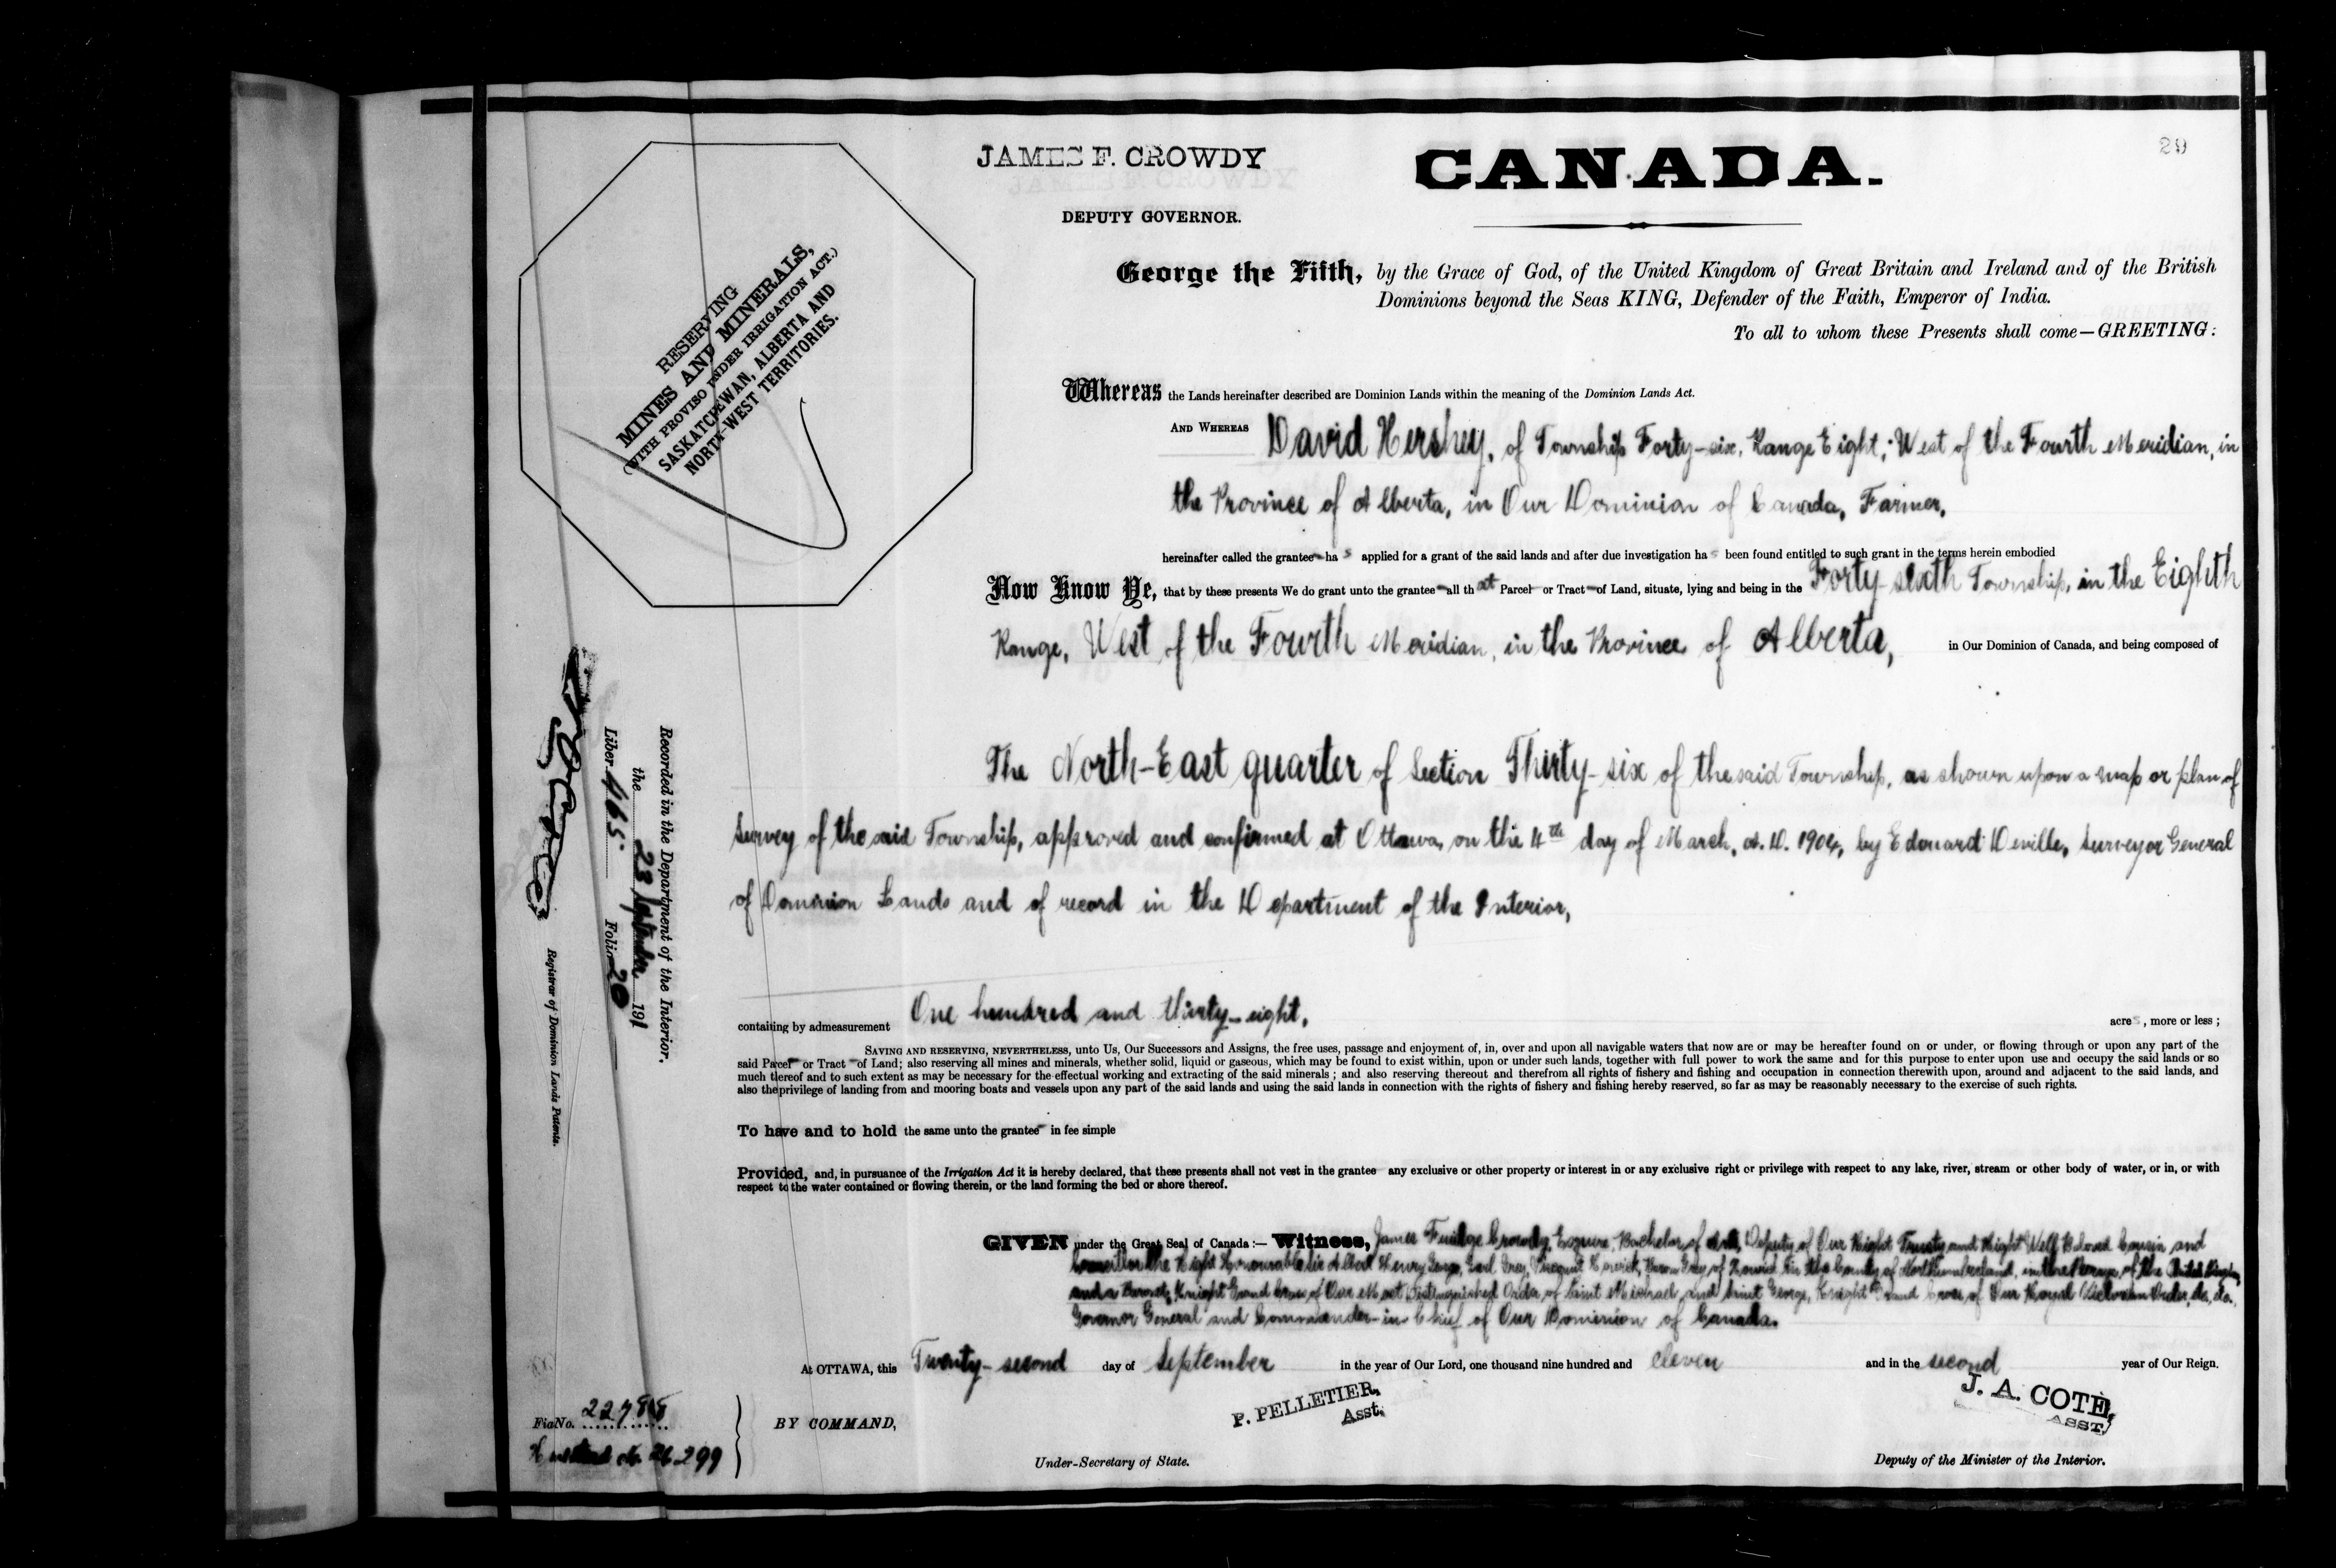 JAMES F. CROWDY
DEPUTY GOVERNOR.
CANADA.
29
RESERVING
MINES AND MINERALS,
(WITH PROVISO UNDER IRRIGATION ACT.)
SASKATCHEWAN, ALBERTA AND
NORTH-WEST TERRITORIES.
George the Fifth, by the Grace of God, of the United Kingdom of Great Britain and Ireland and of the British
Dominions beyond the Seas KING, Defender of the Faith, Emperor of India.
To all to whom these Presents shall come—GREETING:
Whereas the Lands hereinafter described are Dominion Lands within the meaning of the Dominion Lands Act.
AND WHEREAS David Hershey, of Township Forty-six, Range Eight, West of the Fourth Meridian, in
the Province of Alberta, in Our Dominion of Canada, Farmer,
hereinafter called the grantee has applied for a grant of the said lands and after due investigation has been found entitled to such grant in the terms herein embodied
Now Know Ye, that by these presents We do grant unto the grantee all that Parcel or Tract of Land, situate, lying and being in the Forty-sixth Township, in the Eighth
Range, West of the Fourth Meridian, in the Province of Alberta, in Our Dominion of Canada, and being composed of
The North-East quarter of Section Thirty-six of the said Township, as shown upon a map or plan of
survey of the said Township, approved and confirmed at Ottawa, on the 4th day of March, A.D. 1904, by Edouard Deville, Surveyor General
of Dominion Lands and of record in the Department of the Interior,
containing by admeasurement One hundred and thirty-eight, acres, more or less;
SAVING AND RESERVING, NEVERTHELESS, unto Us, Our Successors and Assigns, the free uses, passage and enjoyment of, in, over and upon all navigable waters that now are or may be hereafter found on or under, or flowing through or upon any part of the
said Parcel or Tract of Land; also reserving all mines and minerals, whether solid, liquid or gaseous, which may be found to exist within, upon or under such lands, together with full power to work the same and for this purpose to enter upon use and occupy the said lands or so
much thereof and to such extent as may be necessary for the effectual working and extracting of the said minerals; and also reserving thereout and therefrom all rights of fishery and fishing and occupation in connection therewith upon, around and adjacent to the said lands, and
also the privilege of landing from and mooring boats and vessels upon any part of the said lands and using the said lands in connection with the rights of fishery and fishing hereby reserved, so far as may be reasonably necessary to the exercise of such rights.
To have and to hold the same unto the grantee in fee simple
Provided, and, in pursuance of the Irrigation Act it is hereby declared, that these presents shall not vest in the grantee any exclusive or other property or interest in or any exclusive right or privilege with respect to any lake, river, stream or other body of water, or in, or with
respect to the water contained or flowing therein, or the land forming the bed or shore thereof.
GIVEN under the Great Seal of Canada:— Witness, James Fuidge Crowdy, Esquire, Bachelor of Arts, Deputy of Our Right Trusty and Right Well Beloved Cousin and
Councillor the Right Honourable Sir Albert Henry George, Earl Grey, Viscount Howick, Baron Grey of Howick in the County of Northumberland, in the Peerage of the United Kingdom,
and a Baronet, Knight Grand Cross of Our Most Distinguished Order of Saint Michael and Saint George, Knight Grand Cross of Our Royal Victorian Order, &c., &c.,
Governor General and Commander-in-Chief of Our Dominion of Canada.
At OTTAWA, this Twenty-second day of September in the year of Our Lord, one thousand nine hundred and eleven and in the second year of Our Reign.
P. PELLETIER,
Asst.
J. A. COTÉ,
ASST.
BY COMMAND,
Under-Secretary of State.
Deputy of the Minister of the Interior.
Recorded in the Department of the Interior.
the 23 September 1911
Liber 465 Folio 20
Registrar of Dominion Lands Patents.
Fiat No.